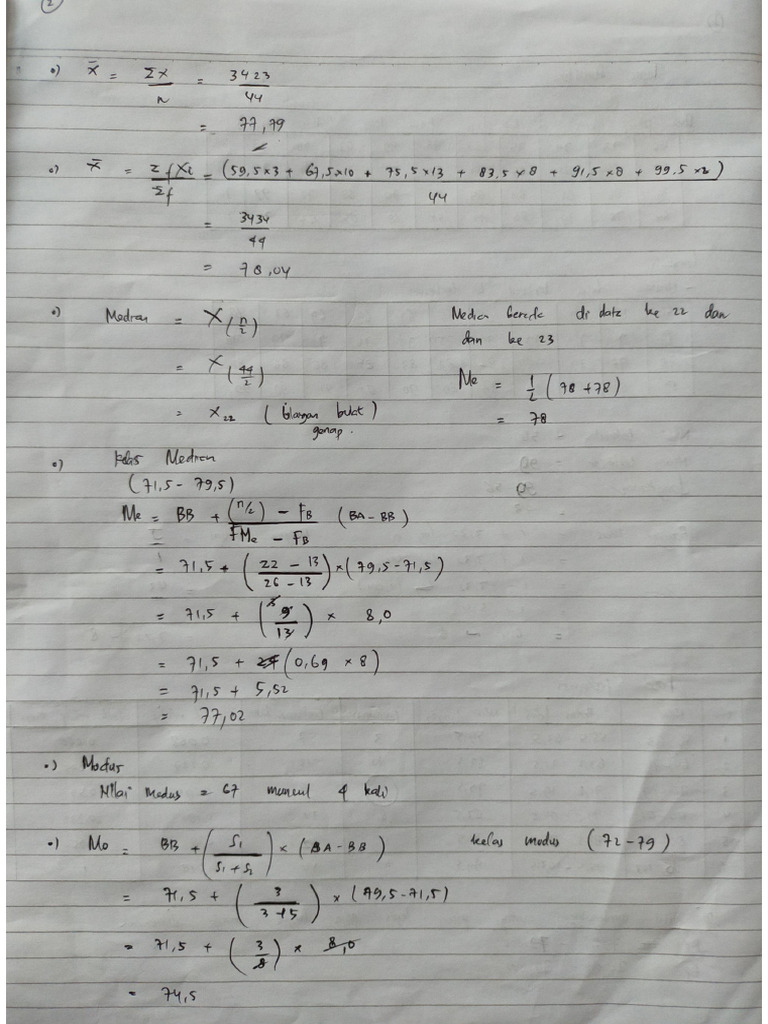 2
•) x̄ = Σx / n = 3423 / 44
= 77,79
•) x̄ = Σ f Xi / Σf = (59,5x3 + 67,5x10 + 75,5x13 + 83,5x8 + 91,5x8 + 99,5x2) / 44
= 3434 / 44
= 78,04
•) Median = X (n/2)
= X (44/2)
= X22 (bilangan bulat) genap.
Median berada di data ke 22 dan
dan ke 23
Me = 1/2 (78 + 78)
= 78
•) Kelas Median
(71,5 - 79,5)
Me = BB + (n/2) - FB / FMe - FB (BA - BB)
= 71,5 + (22 - 13 / 26 - 13) x (79,5 - 71,5)
= 71,5 + (9 / 13) x 8,0
= 71,5 + (0,69 x 8)
= 71,5 + 5,52
= 77,02
•) Modus
Nilai modus = 67 muncul 4 kali
•) Mo = BB + (S1 / S1 + S2) x (BA - BB) kelas modus (72 - 79)
= 71,5 + (3 / 3 + 5) x (79,5 - 71,5)
= 71,5 + (3 / 8) x 8,0
= 74,5